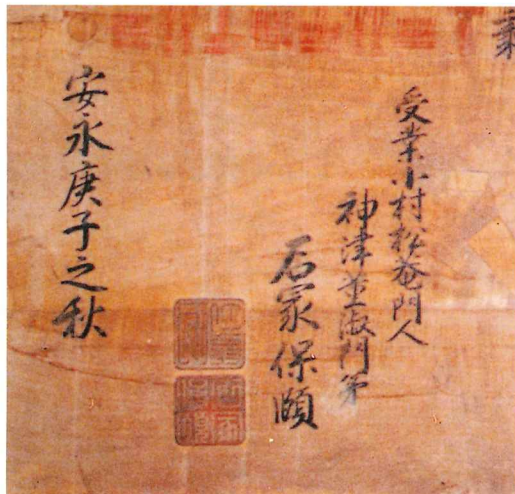 受業小村松菴門人
神津菫淑門第
石冢保頤
安永庚子之秋